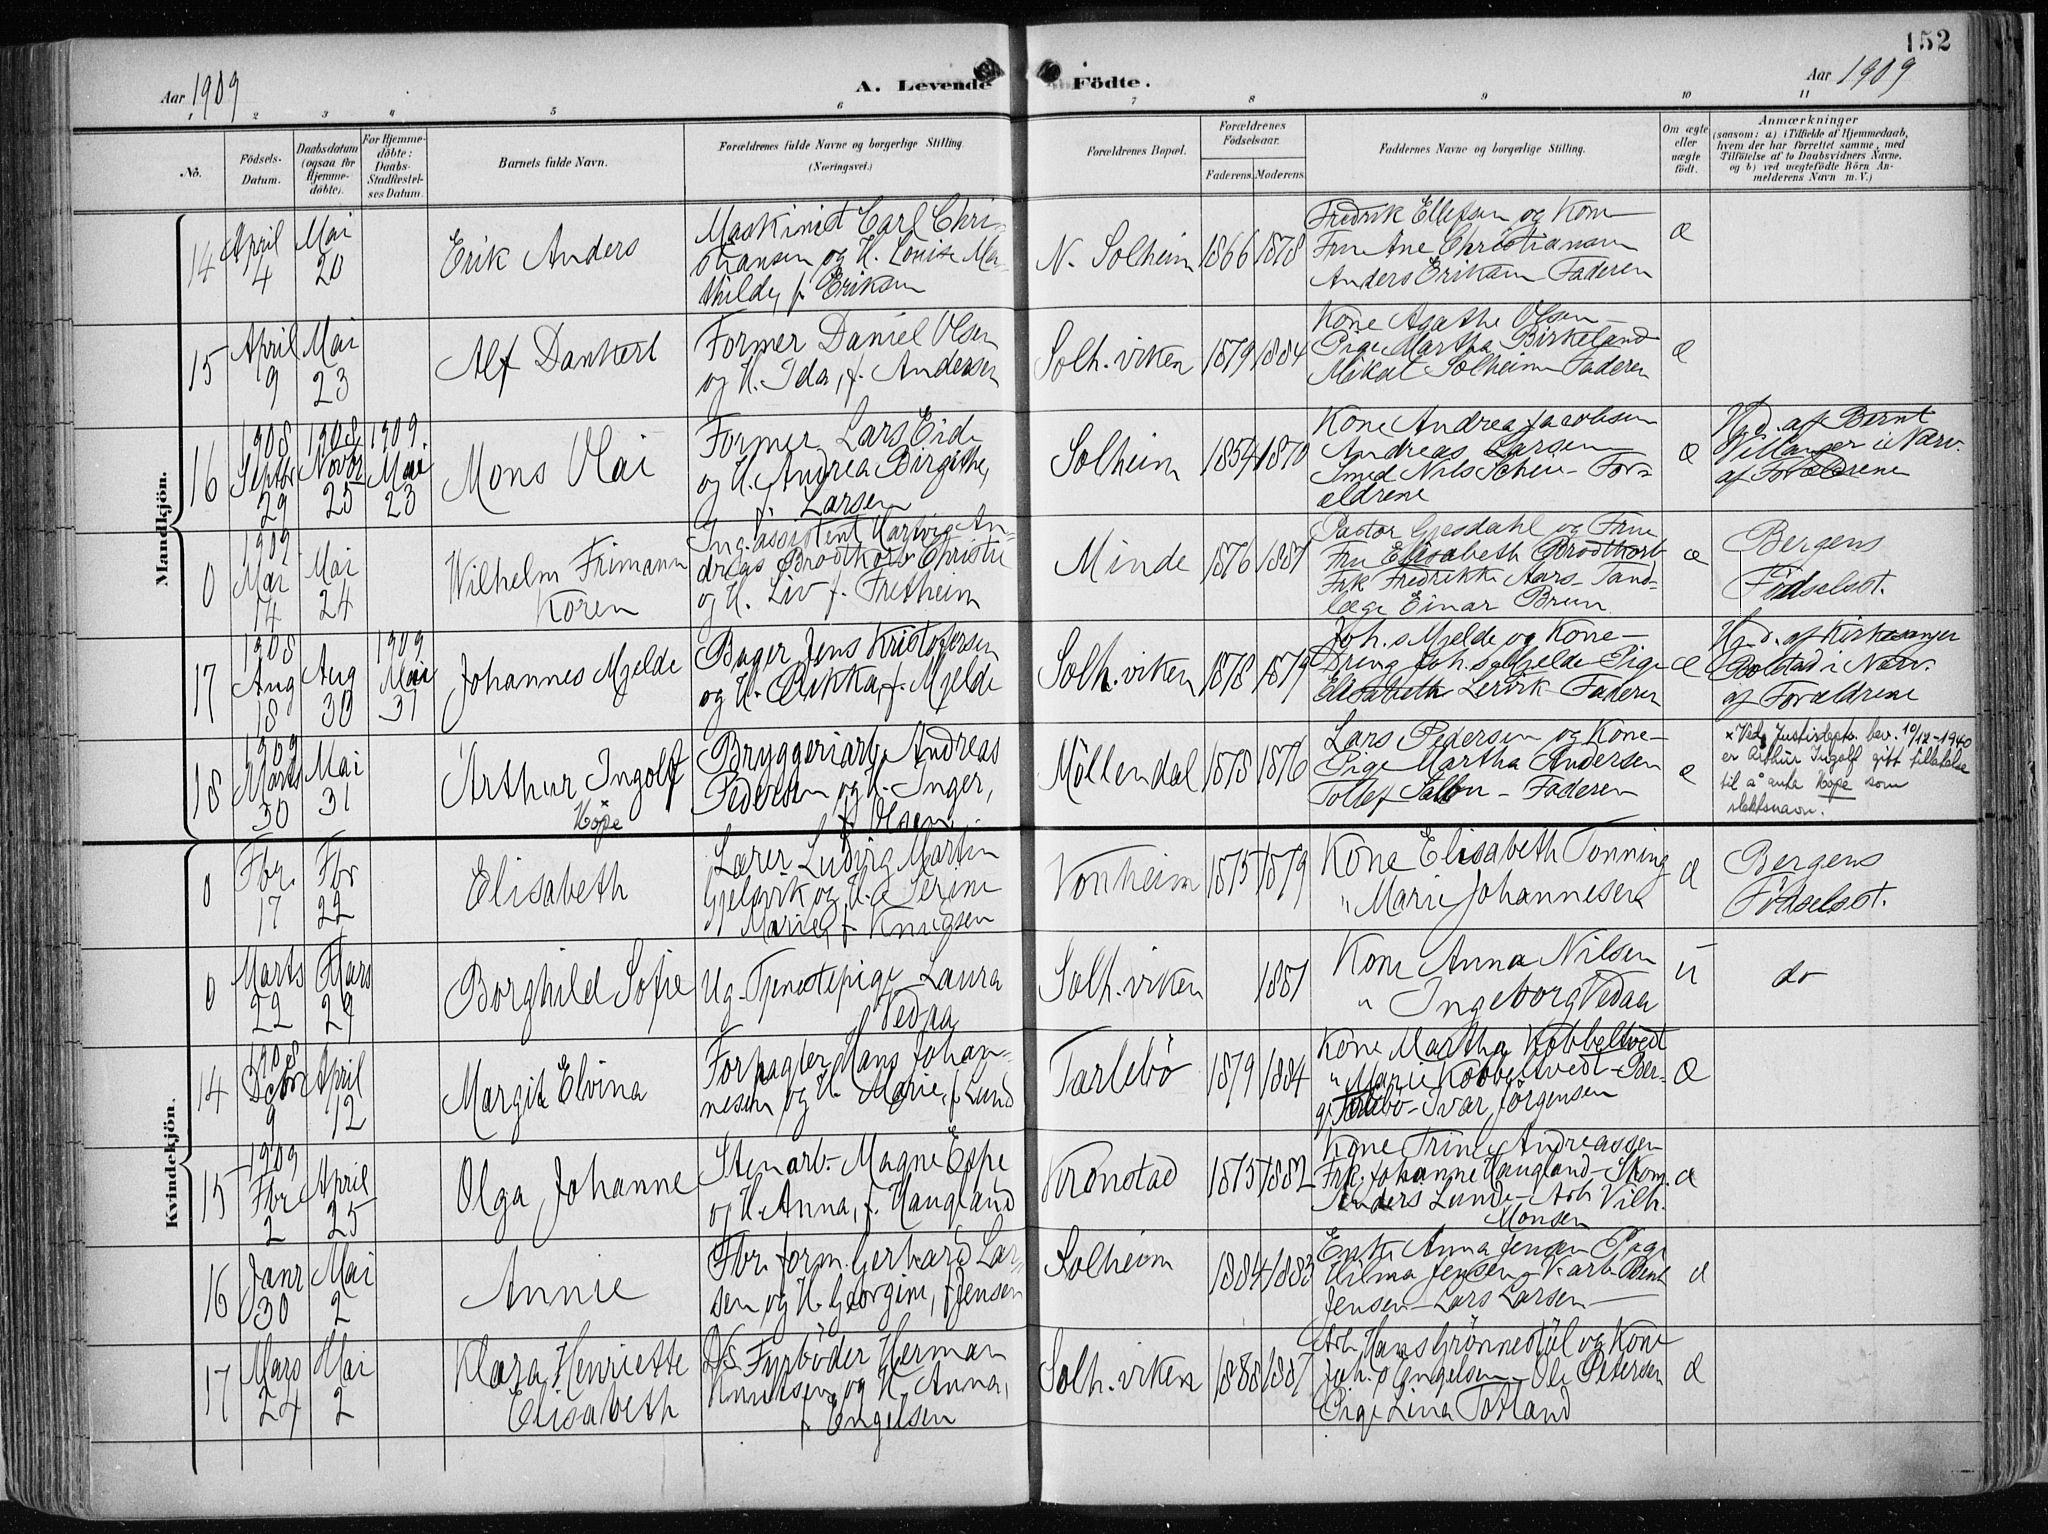 152
Aar 1909
A. Levende Födte.
Aar 1909
1 2 3 4 5 6 7 8 9 10 11
No.
Födsels-Datum.
Daabsdatum (ogsaa for Hjemme-döbte).
For Hjemme-döbte: Daabs-Stadfæstel-ses Datum.
Barnets fulde Navn.
Forældrenes fulde Navne og borgerlige Stilling. (Næringsvei.)
Forældrenes Bopæl.
Forældrenes Födselsaar.
Faderens. Moderens.
Faddernes Navne og borgerlige Stilling.
Om ægte eller uægte födt.
Anmærkninger
(saasom: a) i Tilfælde af Hjemmedaab, hvem der har forrettet samme, med Tilföielse af to Daabsvidners Navne, og b) ved uægtefödte Börn An-melderens Navn m. V.)
Mandkjön.
14 April 4 Mai 20
Erik Anders
Maskinist Carl Chri-
stiansen og H. Louise Ma-
thilde, f. Eriksen
N. Solheim 1866 1878
Fredrik Ellefsen og Kone
Fru Ane Christiansen
Anders Eriksen Faderen
æ
15 April 9 Mai 23
Alf Dankert
Former Daniel Olsen
og H. Ida, f. Andersen
Solh.viken 1879 1884
Kone Agathe Olsen -
Pige Martha Birkeland
Mikal Solheim Faderen
æ
16 1908 Septbr 29 1908 Novbr 25 1909 Mai 23
Mons Olai
Former Lars Eide
og H. Andrea Birgithe,
f. Larsen
Solheim 1854 1870
Kone Andrea Jacobsen
Andreas Larsen
Smed Nils Scheie - For-
ældrene
æ
Hjd. af Bernt
Willanger i Nærv.
af Forældrene
0 1909 Mai 14 Mai 24
Wilhelm Frimann
Koren
Ing.assistent Hartvig An-
dreas Brodtkorb Christie
og H. Liv f. Fretheim
Minde 1876 1881
Pastor Gjesdahl og Frue
Fru Elisabeth Brodtkorb
Frk Fredrikke Aars - Tand-
læge Einar Brun
æ
Bergens
Födselsst.
17 1908 Aug 18 Aug 30 1909 Mai 31
Johannes Mjelde
Bager Jens Kristofersen
og H. Rikka, f. Mjelde
Solh.viken 1878 1879
Joh. Mjelde og Kone -
Dreng Joh. Mjelde Pige
Elisabeth Lervik - Faderen
æ
Hjd. af Kirkesanger
i Nærv.
af Forældrene
18 1909 Marts 30 Mai 31
Arthur Ingolf
Höpe
Bryggeriarb. Andreas
Pedersen og H. Inger,
f. Olsen
Möllendal 1878 1876
Lars Pedersen og Kone -
Pige Martha Andersen
Tollef - Faderen
æ
x Ved Justisdepts. bev. 10/12-1940
er Arthur Ingolf gitt tillatelse
til å anta Höpe som
slektsnavn.
Kvindekjön.
0 Fbr. 17 Fbr 22
Elisabeth
Lærer Ludvig Martin
Gjelsvik og H. Serine
Marie f. Knudsen
Vonheim 1875 1879
Kone Elisabeth Tonning
" Marie Johannesen
æ
Bergens
Födselsst.
0 Marts 22 Mars 29
Borghild Sofie
Ug. Tjenestepige Laura
Vedaa
Solh.viken 1881
Kone Anna Nilsen
" Ingeborg Vedaa
u
do
14 1908 Decbr 9 April 12
Margit Elvina
Forpagter Hans Johan-
nesen og H. Marie, f. Lund
Tarlebö 1879 1884
Kone Martha Kobbeltvedt
" Marie Kobbeltvedt - Ber-
ge Tarlebö - Ivar Jörgensen
Æ
15 1909 Fbr 2 April 25
Olga Johanne
Stenarb. Magne Espe
og H. Anna, f. Haugland
Kronstad 1875 1882
Kone Trine Andreassen
Frk. Johanne Haugland - Skom.
Anders Lunde - Arb Vilh.
Monsen
æ
16 Janr 30 Mai 2
Annie
Fbr. form. Gerhard Lar-
sen og H. Georgine, f. Jensen
Solheim 1884 1883
Enke Anna Jensen Pige
Hilma Jensen - V.arb. Bernt
Jensen - Lars Larsen -
æ
17 Mars 24 Mai 2
Klara Henriette
Elisabeth
Ds. Fyrböder Herman
Knudsen og H. Anna,
f. Engelsen
Solh.viken 1888 1887
Arb. Hans Grönnestöl og Kone
Joh.s Engelsen - Ole Petersen
Pige Lina Totland
æ